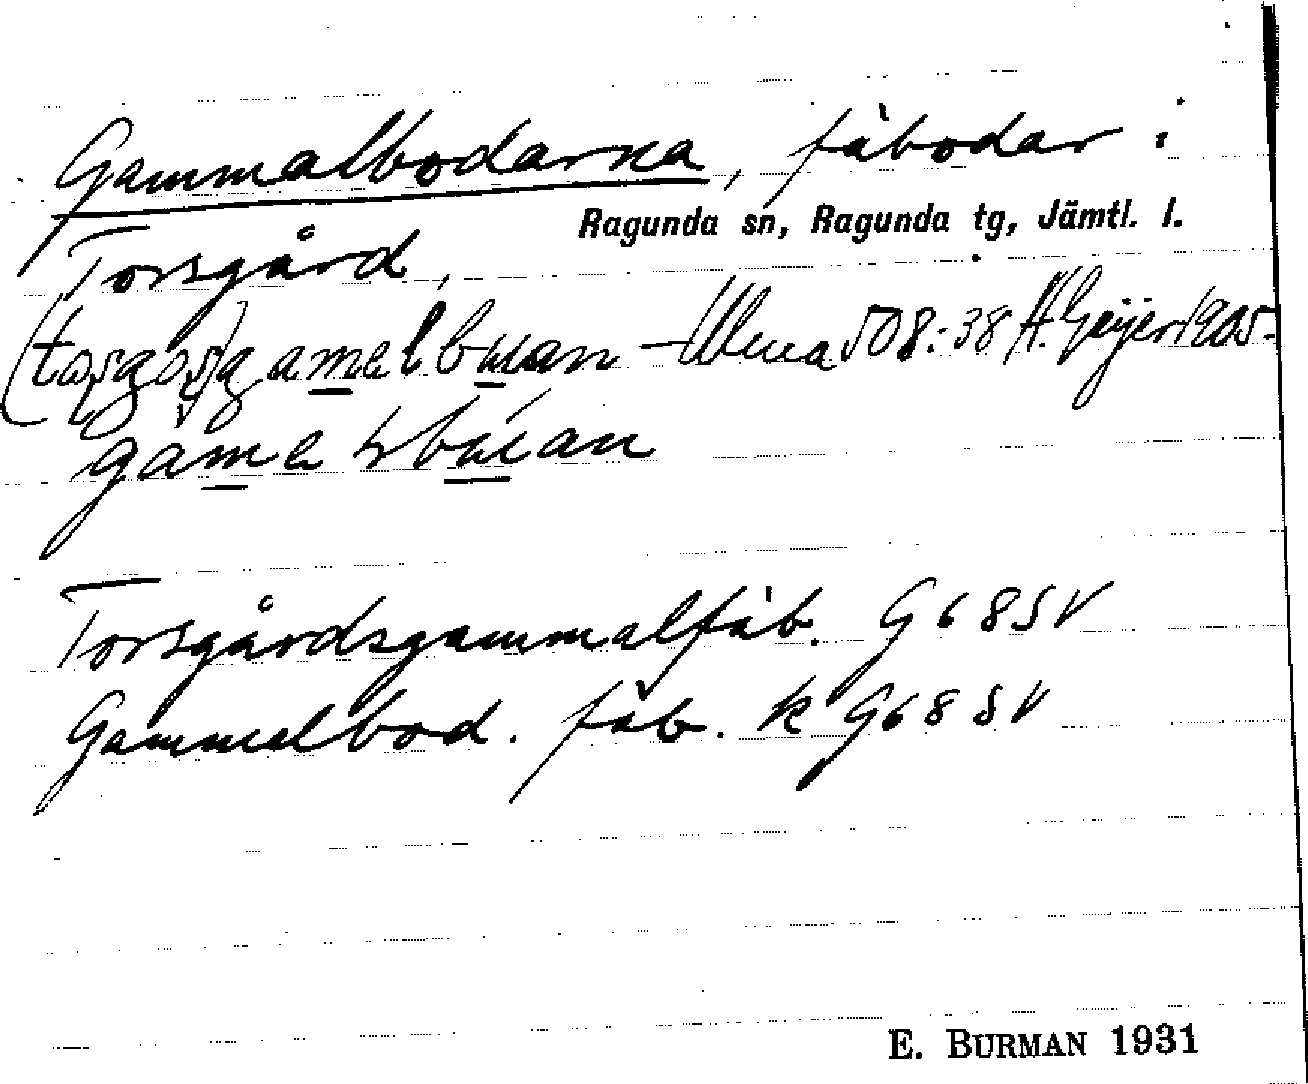 Gammalbodarna, fäbodar i
Ragunda sn, Ragunda tg, Jämtl. l.
Torsgård,
gamelbuan – 508:38 H. Geijer 1905.
Torsgårdsgammalfäb. G68SV
Gammelbod. fäb. k G68SV
E. BURMAN 1931